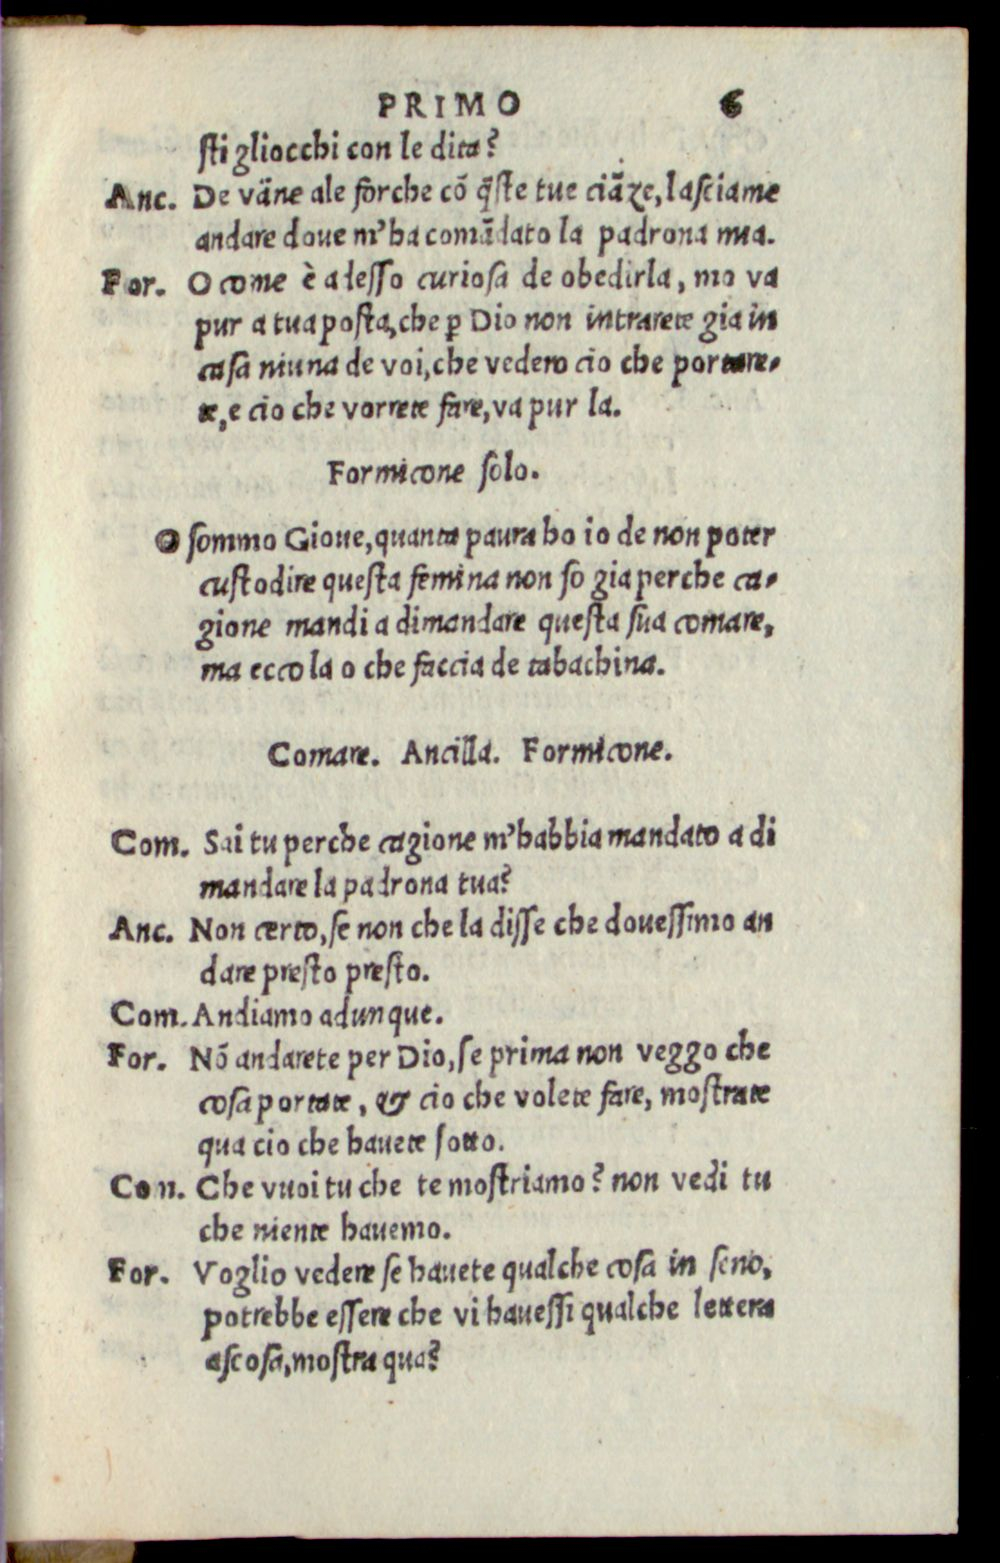 PRIMO 6
sti gliocchi con le dita?
Anc. De väne ale forche cō q̄ste tue ciāze, lasciame
andare doue m'ha comādato la padrona mia.
For. O come è adesso curiosa de obedirla, mo va
pur a tua posta, che ꝑ Dio non intrarete gia in
casa niuna de voi, che vedero cio che portare-
te, e cio che vorrete fare, va pur la.
Formicone solo.
O sommo Gioue, quanta paura ho io de non poter
custodire questa femina non so gia perche ca-
gione mandi a dimandare questa sua comare,
ma eccola o che faccia de tabachina.
Comare. Ancilla. Formicone.
Com. Sai tu perche cagione m'habbia mandato a di
mandare la padrona tua?
Anc. Non certo, se non che la disse che douessimo an
dare presto presto.
Com. Andiamo adunque.
For. Nō andarete per Dio, se prima non veggo che
cosa portate, & cio che volete fare, mostrate
qua cio che hauete sotto.
Com. Che vuoi tu che te mostriamo? non vedi tu
che niente hauemo.
For. Voglio vedere se hauete qualche cosa in seno,
potrebbe essere che vi hauessi qualche lettera
ascosa, mostra qua?